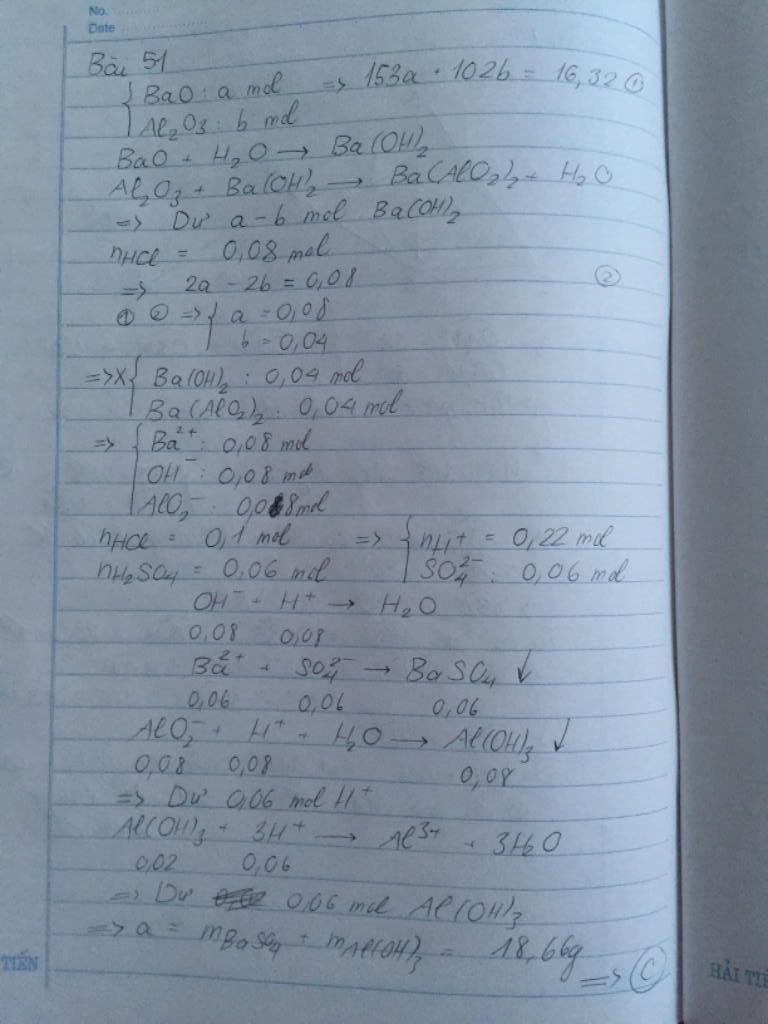 No. ..............
Date ..............
Bài 51
{ BaO : a mol => 153a + 102b = 16,32 ①
Al₂O₃ : b mol
BaO + H₂O → Ba(OH)₂
Al₂O₃ + Ba(OH)₂ → Ba(AlO₂)₂ + H₂O
=> Dư a - b mol Ba(OH)₂
nHCl = 0,08 mol
=> 2a - 2b = 0,08 ②
① ② => { a = 0,08
b = 0,04
=> X { Ba(OH)₂ : 0,04 mol
Ba(AlO₂)₂ : 0,04 mol
=> { Ba²⁺ : 0,08 mol
OH⁻ : 0,08 mol
AlO₂⁻ : 0,08 mol
nHCl = 0,1 mol => { nH⁺ = 0,22 mol
nH₂SO₄ = 0,06 mol SO₄²⁻ : 0,06 mol
OH⁻ + H⁺ → H₂O
0,08 0,08
Ba²⁺ + SO₄²⁻ → BaSO₄ ↓
0,06 0,06 0,06
AlO₂⁻ + H⁺ + H₂O → Al(OH)₃ ↓
0,08 0,08 0,08
=> Dư 0,06 mol H⁺
Al(OH)₃ + 3H⁺ → Al³⁺ + 3H₂O
0,02 0,06
=> Dư 0,06 mol Al(OH)₃
=> a = mBaSO₄ + mAl(OH)₃ = 18,66g
=> Ⓒ
TIẾN
HẢI TIẾ